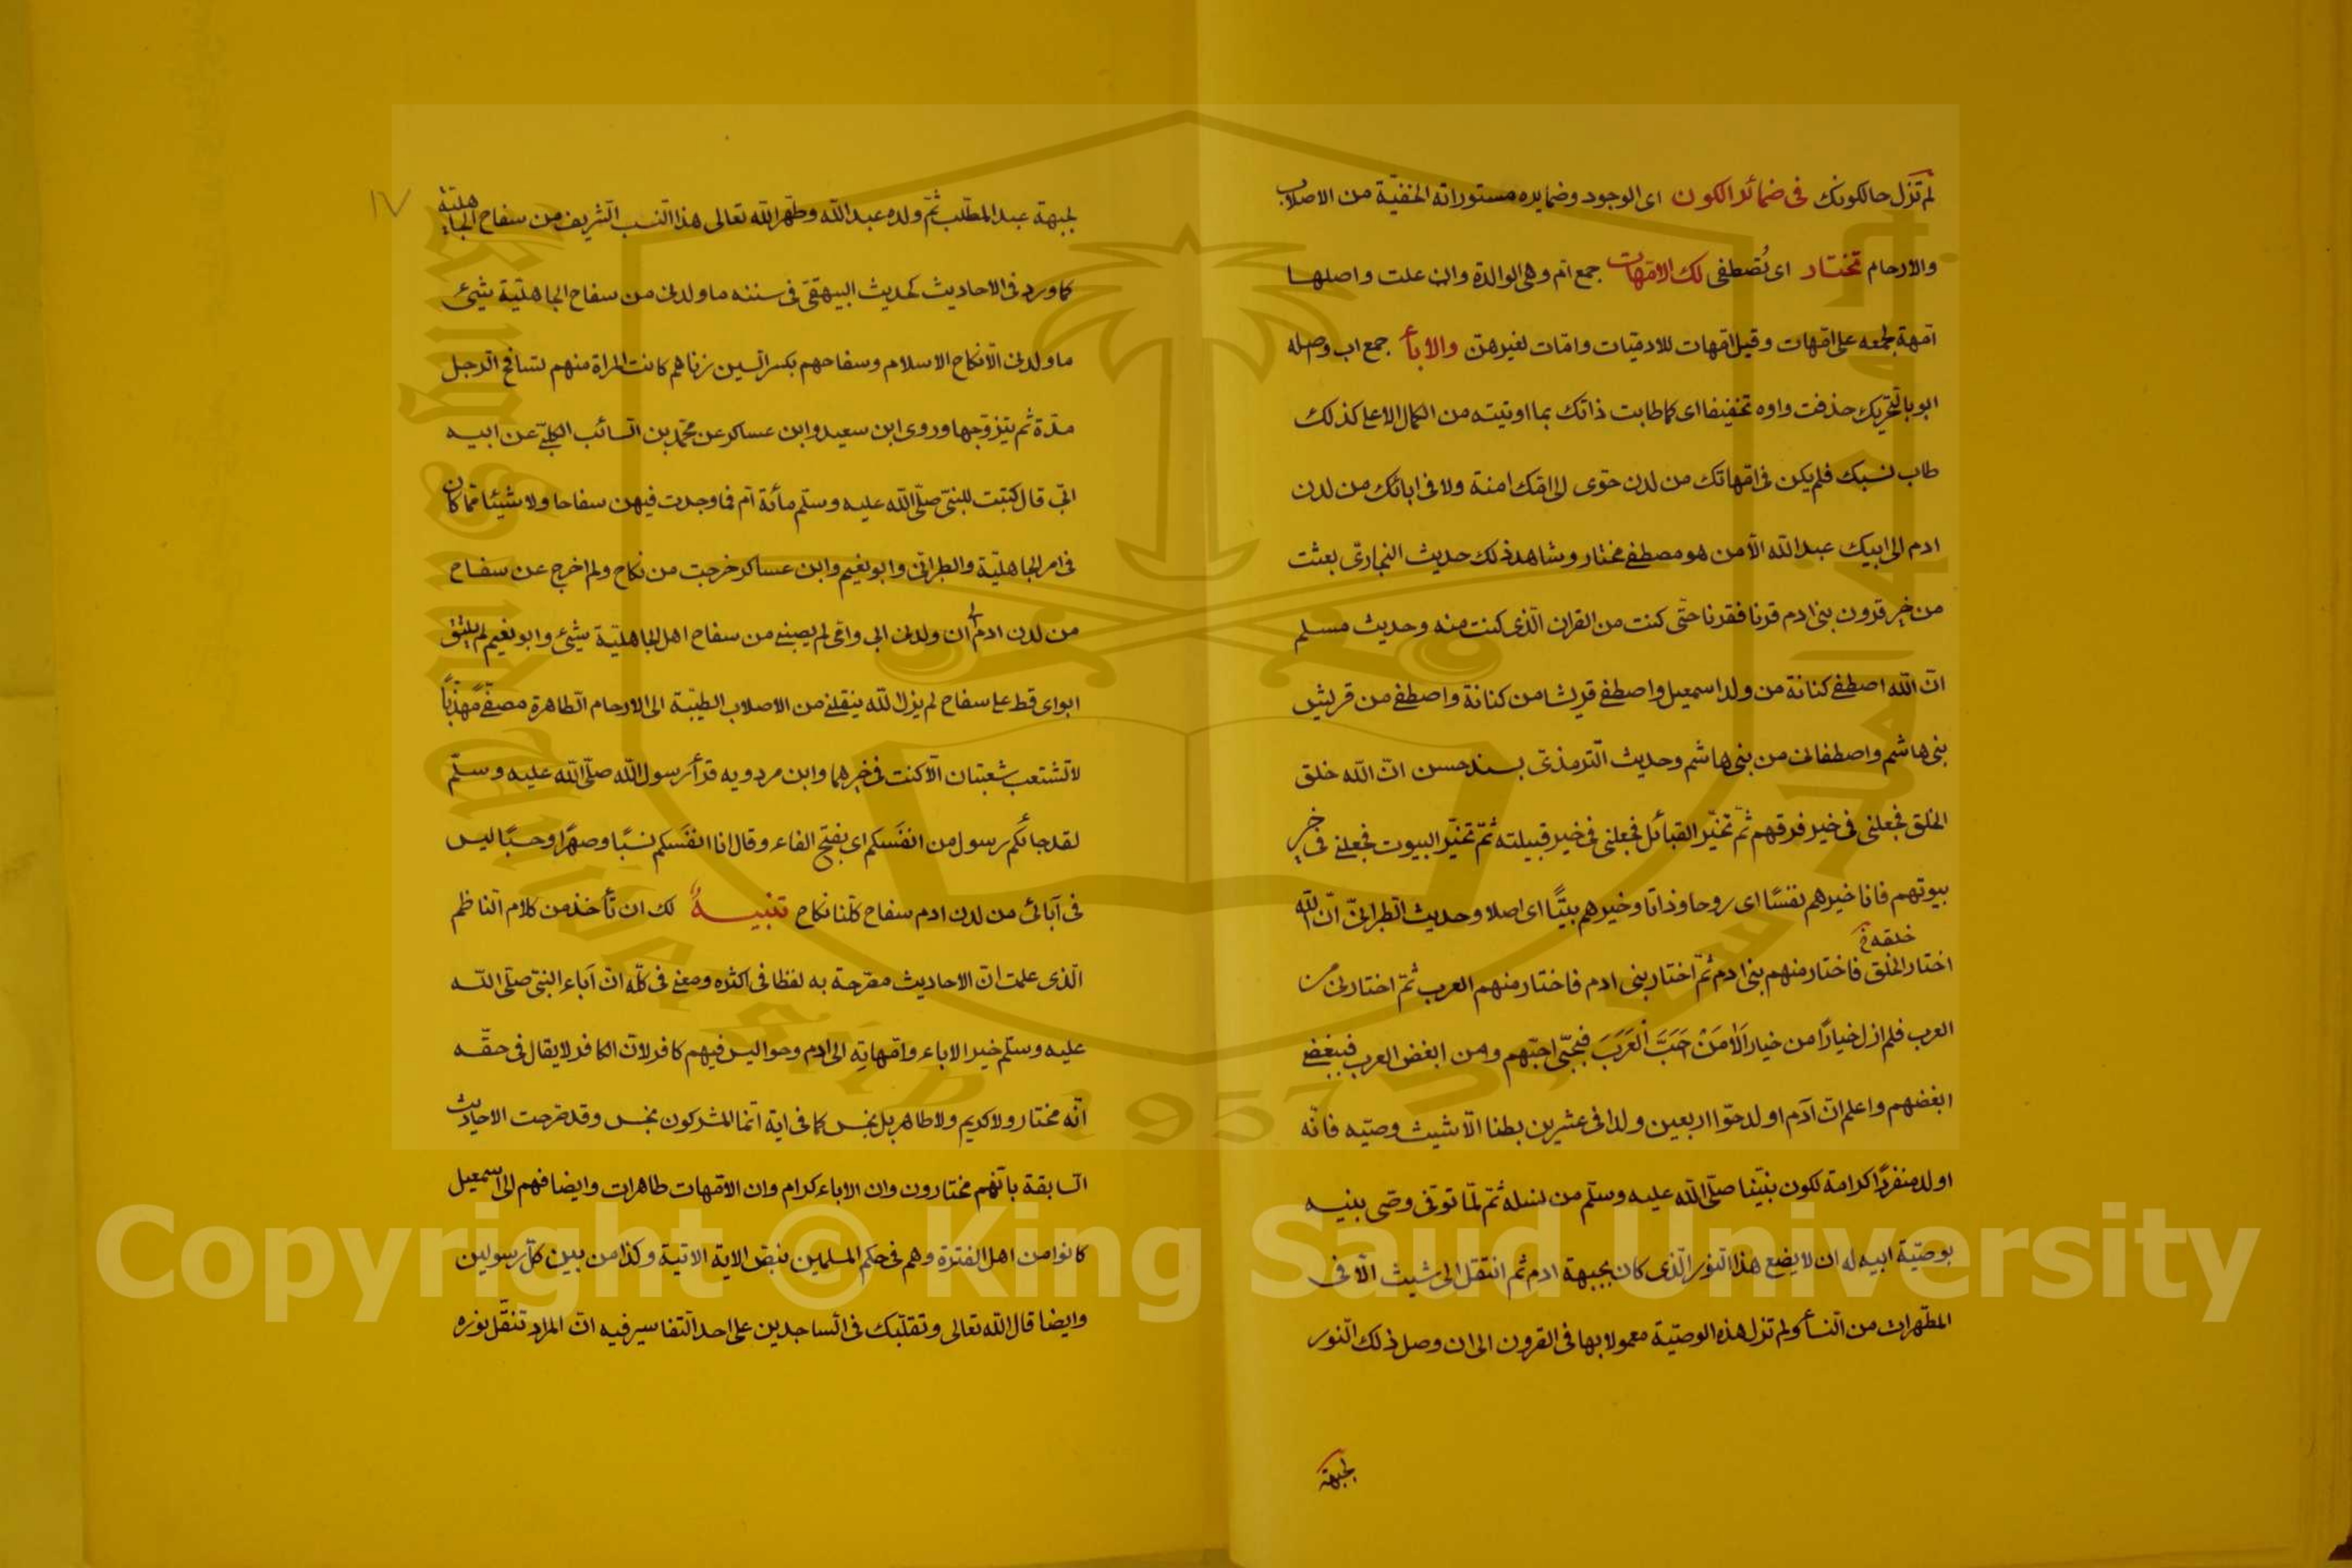 لم تزل حالكونك فى ضمائر الكون اى الوجود وضمايره مستوراته الخفيّة من الاصلاب
والارحام تختار اى تُصطفى لك الامّهات جمع امّ وهى الوالدة وان علت واصلها
امّهة لجمعه على امّهات وقيل امّهات للادميّات وامّات لغيرهنّ والابأ جمع اب وصله
ابو بالتّحريك حذفت واوه تخفيفا اى كما طابت ذاتك بما اوتيته من الكمال الاعلى كذلك
طاب نسبك فلم يكن فى امّهاتك من لدن حوّى الى امّك امنة ولا فى ابائك من لدن
ادم الى ابيك عبد اللّه الّا من هو مصطفى مختار وشاهد ذلك حديث البخارىّ بعثت
من خير قرون بنى ادم قرنا فقرنا حتّى كنت من القران الّذى كنت منه وحديث مسلم
انّ اللّه اصطفى كنانة من ولد اسمعيل واصطفى قريشا من كنانة واصطفى من قريش
بنى هاشم واصطفانى من بنى هاشم وحديث التّرمذىّ بسند حسن انّ اللّه خلق
الخلق فجعلنى فى خير فرقهم ثمّ تخيّر القبائل فجعلنى فى خير قبيلته ثمّ تخيّر البيوت فجعلنى فى خير
بيوتهم فانا خيرهم نفسًا اى روحا وذاتا وخيرهم بيتًا اى اصلا وحديث الطّبرانىّ انّ اللّه
خلقه خ
اختار الخلق فاختار منهم بنى ادم ثمّ اختار بنى ادم فاختار منهم العرب ثمّ اختارنى من
العرب فلم ازل خيارًا من خيار اَلا مَنْ حَبَّ الْعَرَبَ فبحبّى احبّهم ومن ابغض العرب فببغضى
ابغضهم واعلم انّ آدم اولد حوّا اربعين ولدا فى عشرين بطنا الّا شيث وصيّه فانّه
اولد منفردًا كرامة لكون نبيّنا صلّى اللّه عليه وسلّم من نسله ثمّ لمّا توفّى وصّى بنيه
بوصيّة ابيه له ان لا يضع هذا النّور الّذى كان بجبهة ادم ثمّ انتقل الى شيث الّا فى
المطّهرات من النّسأ ولم تزل هذه الوصيّة معمولا بها فى القرون الى ان وصل ذلك النّور
لجبهة
١٧
لجبهة عبد المطّلب ثمّ ولده عبد اللّه وطهّر اللّه تعالى هذا النّسب الشّريف من سفاح الجاهليّة
كما ورد فى الاحاديث كحديث البيهقىّ فى سننه ما ولدنى من سفاح الجاهليّة شئ
ما ولدنى الّا نكاح الاسلام وسفاحهم بكسر السّين زناهم كانت المراة منهم تسافح الرّجل
مدّة ثم يتزوّجها وروى ابن سعيد وابن عساكر عن محمّد بن السّائب الكلبىّ عن ابيه
انّى قال كتبت للنبىّ صلّى اللّه عليه وسلّم مأئة امّ فما وجدت فيهن سفاحا ولا شيئا ممّا كان
فى امر الجاهليّة والطبرانىّ وابو نعيم وابن عساكر خرجت من نكاح ولم اخرج عن سفاح
من لدن ادم الى ان ولدنى ابى وامّى لم يصبنى من سفاح اهل الجاهليّة شئ وابو نعيم لم يلتق
ابواى قط على سفاح لم يزل اللّه ينقلنى من الاصلاب الطيّبة الى الارحام الطّاهرة مصفّى مهذّبًا
لا تشتعب شعبتان الّا كنت فى خيرهما وابن مردويه قرأ رسول اللّه صلّى اللّه عليه وسلّم
لقد جائكم رسول من انفَسكم اى بفتح الفاء وقال انا انفَسكم نسبًا وصهرًا وحسبًا ليس
فى آبائى من لدن ادم سفاح كلّنا نكاح تنبيه لك ان تأخذ من كلام النّاظم
الّذى علمت انّ الاحاديث مصرّحة به لفظا فى اكثره ومعنى فى كلّه انّ آباء النبىّ صلّى اللّه
عليه وسلّم خير الاباء وامّهاته الى ادم وحوا ليس فيهم كافر لانّ الكافر لا يقال فى حقّه
انّه مختار ولا كريم ولا طاهر بل نجس كما فى اية انّما المشركون نجس وقد صرحت الاحاديث
السّابقة بانّهم مختارون وان الاباء كرام وان الامّهات طاهرات وايضا فهم الى اسمعيل
كانوا من اهل الفترة وهم فى حكم المسلمين بنصّ الاية الاتية وكذا من بين كلّ رسولين
وايضا قال اللّه تعالى وتقلّبك فى السّاجدين على احد التّفاسير فيه انّ المراد تنقّل نوره
جامعة الملك سعود
King Saud University
1957
Copyright © King Saud University